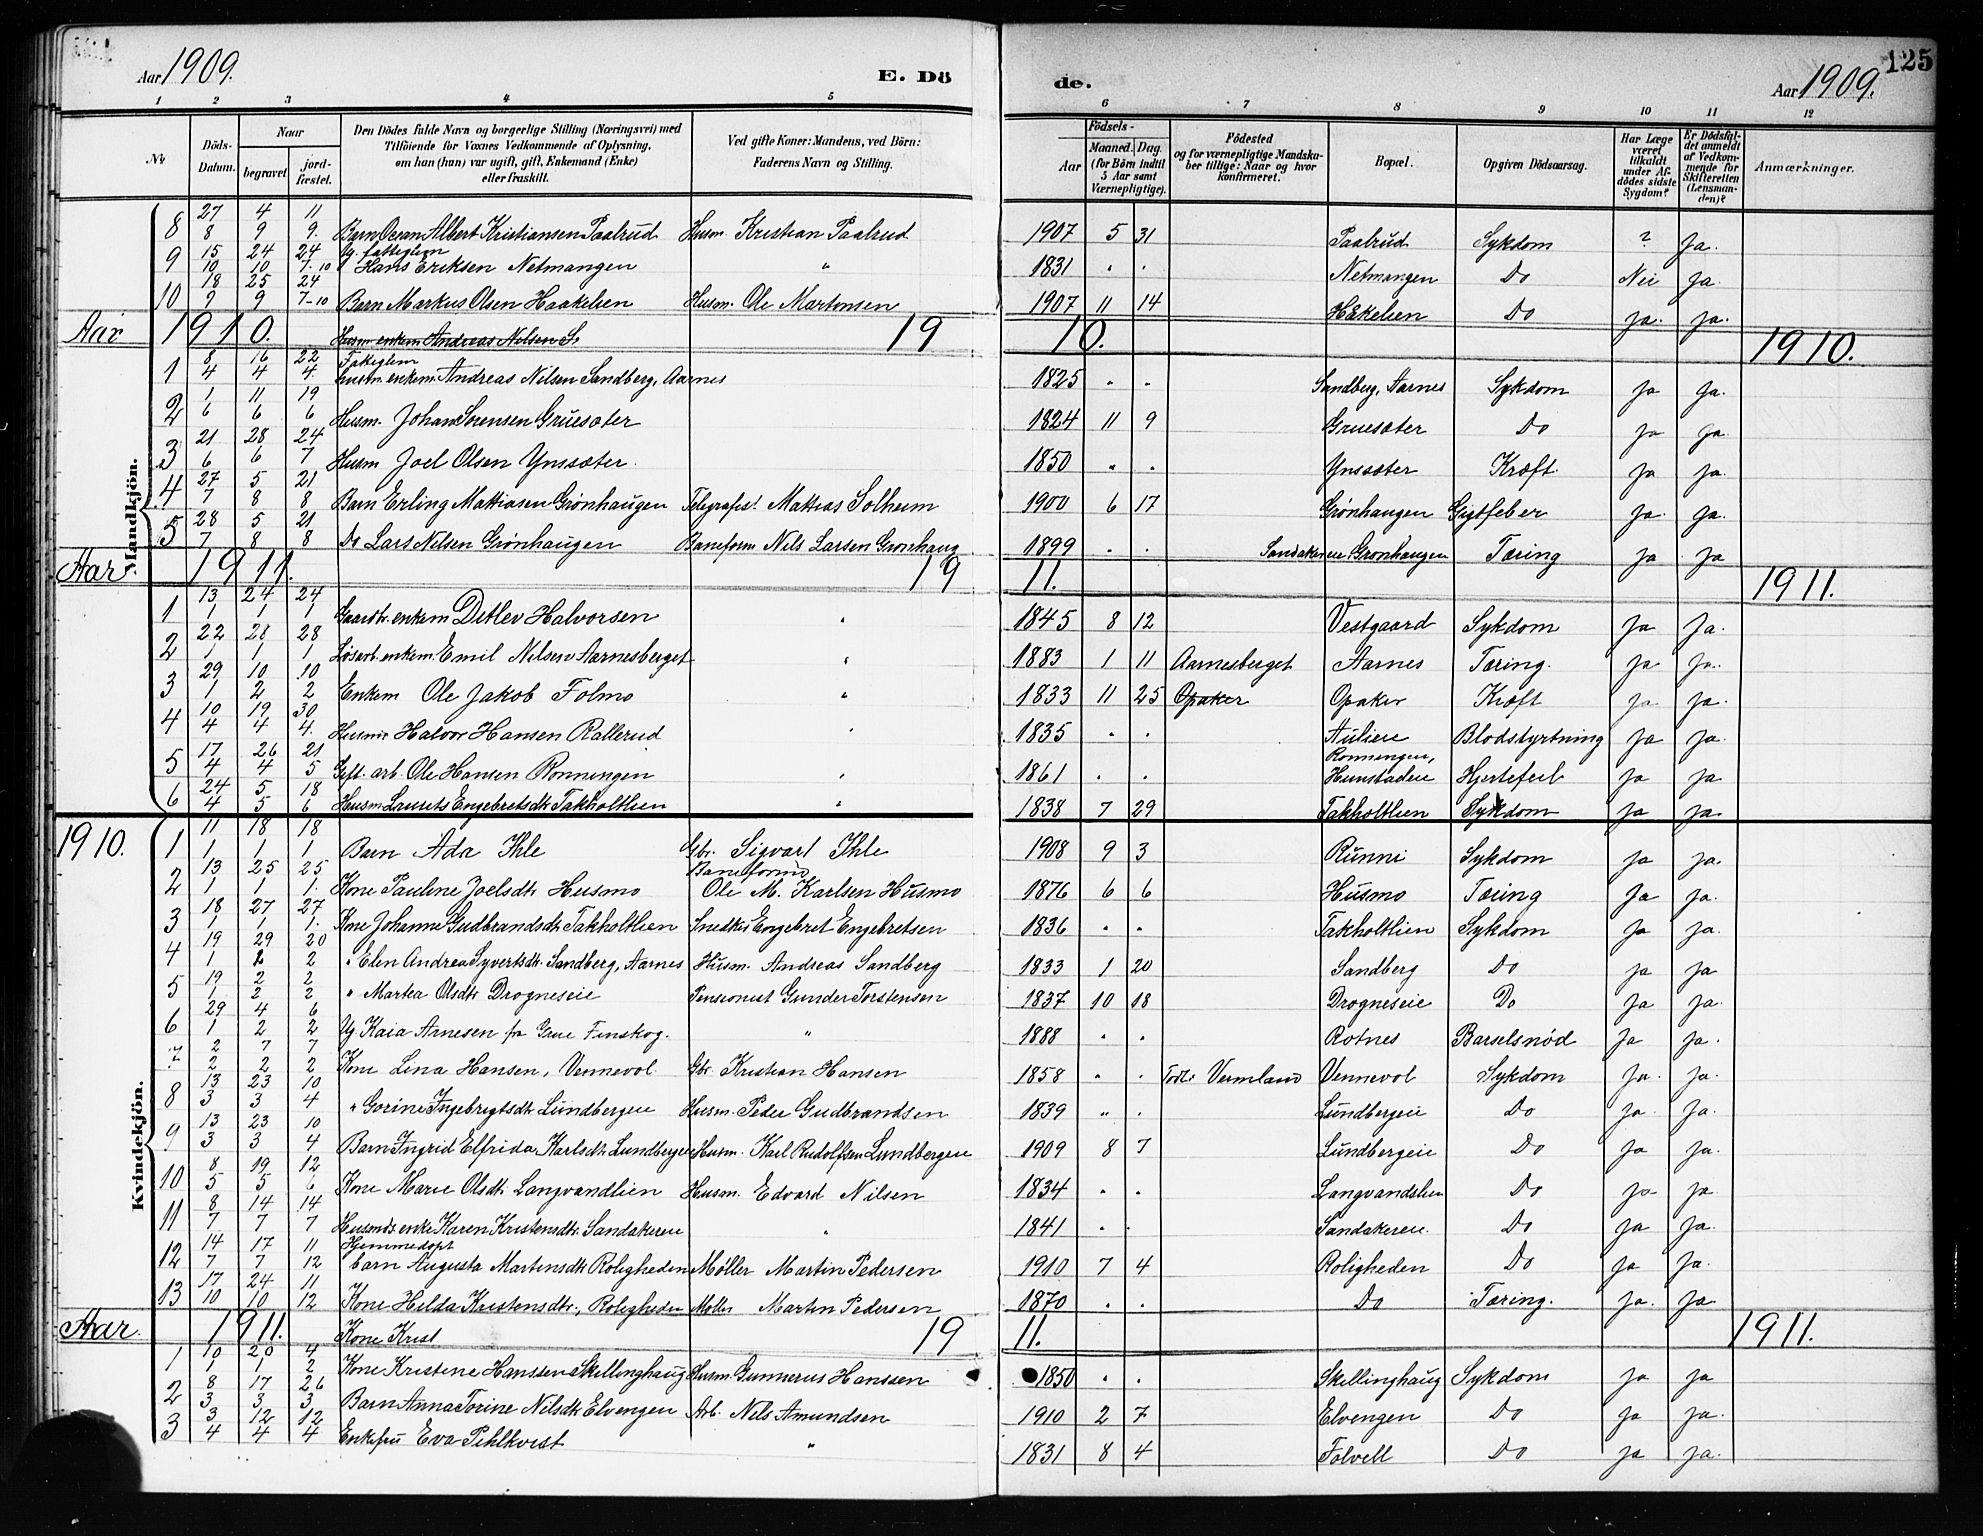 125
Aar 1909. E. Dö de. Aar 1909.
1 2 3 4 5 6 7 8 9 10 11 12
No Döds-Datum. Naar begravet jord-fæstet. Den Dödes fulde Navn og borgerlige Stilling (Næringsvei) med Tilföiende for Voxnes Vedkommende af Oplysning, om han (hun) var ugift, gift, Enkemand (Enke) eller fraskilt. Ved gifte Koner: Mandens, ved Börn: Faderens Navn og Stilling. Födsels- Aar Maaned. Dag. (for Börn indtil 5 Aar samt Værnepligtige). Födested og for værnepligtige Mandskaber tillige: Naar og hvor konfirmeret. Bopæl. Opgiven Dödsaarsag. Har Læge været tilkaldt under Afdödes sidste Sygdom? Er Dödsfaldet anmeldt af Vedkommende for Skifteretten (Lensmanden)? Anmærkninger.
Mandkjön.
8 27/8 4/9 11/9. Barn Oscar Albert Kristiansen Paalrud Husm. Kristian Paalrud 1907 5 31 Paalrud Sykdom ? Ja.
9 15/10 24/10 24/7-10 Ug. fattiglem Hans Eriksen Netmangen " 1831 . . Netmangen Do Nei ja.
10 18/9 25/9 24/7-10 Barn Markus Olsen Haakelien Husm. Ole Martonsen 1907 11 14 Hekelien Do ja. ja.
Aar 1910. Husm. enkem. Andreas Nilsen S. 1910. 1910.
1 8/4 16/4 22/4. Fatiglem husm. enkem. Andreas Nilsen Sandberg, Aarnes 1825 . . Sandberg, Aarnes Sykdom ja ja.
2 1/6 11/6 19/6 Husm. Johan Sørensen Gruesæter 1824 11 9 Gruesæter Do ja ja.
3 21/6 28/6 24/7 Husm Joel Olsen Ynssæter. 1850 . . Ynssæter Kræft. ja ja
4 27/7 5/8 21/8 Barn Erling Mattiasen Grønhaugen Telegrafist Mattias Solheim 1900 6 17 Grønhaugen Gigtfeber ja. ja.
5 28/7 5/8 21/8 Do Lars Nilsen Grønhaugen Baneform Nils Larsen Grønhaug 1899 . . Sandakereie Grønhaugen Tæring ja ja
Aar. 1911. 1911. 1911.
1 13/1 24/1 24/1 Gaardbr. enkem Detlev Halvorsen " 1845 8 12 Vestgaard Sykdom Ja Ja.
2 22/1 28/1 28/1 Løsarb. enkem. Emil Nilsen Aarnesberget " 1883 1 11 Aarnesberget Aarnes Tæring. Ja Ja.
3 29/1 10/2 10/2 Enkem Ole Jakob Folmo " 1833 11 25 Opaker Opaker Kræft ja. ja.
4 10/4 19/4 30/4. Husm Halvor Hansen Rallerud " 1835 . . Aulieie Blodstyrtning ja ja.
5 17/4 26/4 21/5 Gift. arb. Ole Hansen Rønningen " 1861 . . Rønningen, Hunstadeie Hjertefeil ja ja
6 24/4 5/5 18/6 Husm Laurits Engebretsdtr Takholtlien " 1838 7 29 Takholtlien Sykdom ja ja.
Kvindekjön.
1910.
1 11/1 18/1 18/1 Barn Ada Ihle Gbr. Sigvart Ihle 1908 9 3 Runni Sykdom ja ja.
2 13/1 25/1 25/1. Kone Pauline Joelsdtr Husmo Baneformd Ole M. Karlsen Husmo 1876 6 6 Husmo Tæring Ja ja.
3 18/1 27/1 27/1. Kone Johanne Gudbrandsdtr Takholtlien Snedker Engebret Engebretsen 1836 . . Takholtlien Sykdom Ja ja.
4 19/1 29/1 20/2 " Elen Andrea Syvertsdtr. Sandberg, Aarnes Husm. Andreas Sandberg 1833 1 20 Sandberg Do ja Ja.
5 19/1 2/2 2/2 " Martea Olsdtr Drogneseie Pensionist Gunder Torstensen 1837 10 18 Drogneseie Do Ja Ja.
6 29/1 4/2 6/2 Ug Kaia Arnesen fra Grue Finskog. " 1888 . . Rotnes Barselsnød Ja Ja.
7 2/2 7/2 7/2 Kone Lina Hansen, Vennevol Gbr. Kristian Hansen 1858 . . Vermland Vennevol Sykdom Ja. Ja.
8 13/3 23/3 10/4 " Gorine Ingebrigtsdtr Lundbergeie Husm. Peder Gudbrandsen 1839 " . Lundbergeie Do Ja. Ja.
9 13/3 23/3 10/4 Barn Ingrid Elfrida Karlsdtr Lundbergeie Husm. Karl Rudolfsen Lundbergeie 1909 8 7 Lundbergeie Do ja ja.
10 8/5 19/5 12/6 Kone Marie Olsdtr Langvandlien Husm. Edvard Nilsen 1834 . . Langvandslien Do ja. ja.
11 8/7 14/7 14/7 Husmds. enke Karen Kristensdtr. Sandakereie " 1841 . . Sandakereie. Do ja Ja.
12 14/7 17/7 11/12 Hjemmedøpt barn Augusta Martensdtr Roligheden Møller Martin Pedersen 1910 7 4 Roligheden Do ja ja.
13 17/10 24/10 11/12 Kone Hilda Kristensdtr., Roligheden Møller Martin Pedersen 1870 . . Do Tæring. ja. ja
Aar. 1911. Kone Krist 1911. 1911.
1 10/1 20/1 4/2 Kone Kristine Hanssen Skillinghaug Husm. Gunnerus Hanssen 1850 . . Skillinghaug Sykdom ja ja
2 8/3 17/3 26/3 Barn Anna Torine Nilsdtr Elvengen Arb. Nils Amundsen 1910 2 7 Elvengen Do ja ja.
3 3/4 12/4 12/4 Enkefru Eva Pihlkvist " 1831 8 4 Folvell Do ja ja.